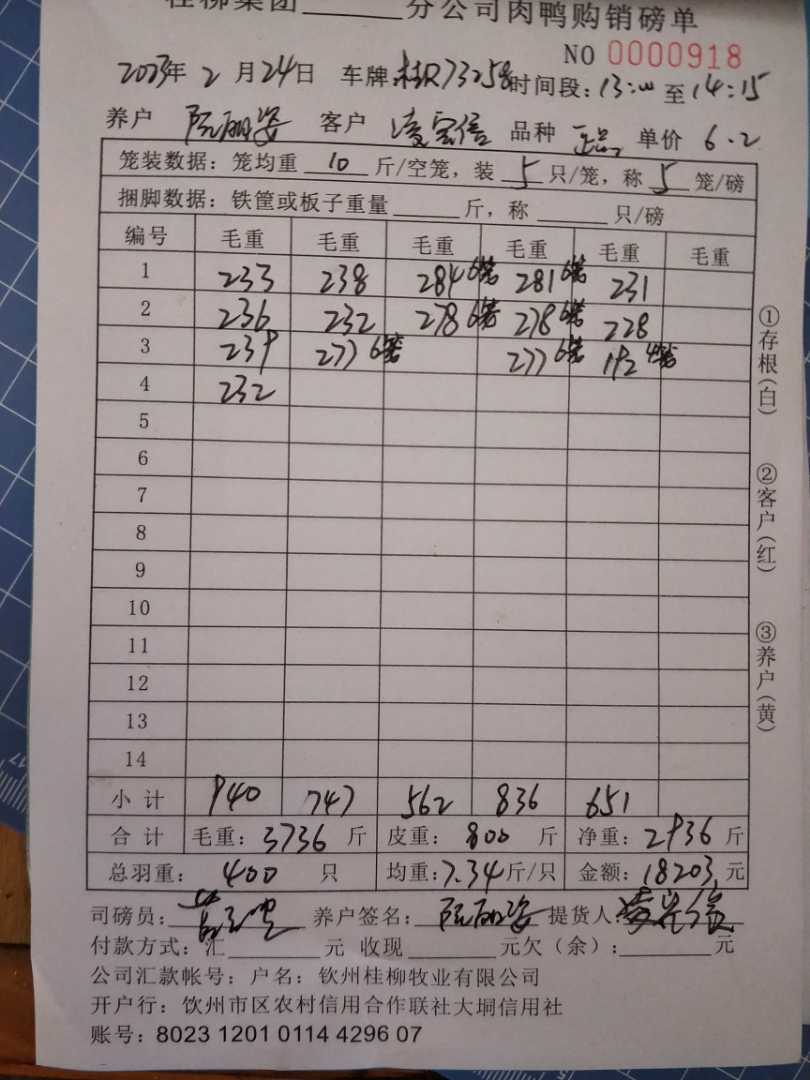 桂柳集团______分公司肉鸭购销磅单
NO 0000918
2023年 2 月 24日 车牌:桂R73258 时间段:13:00 至 14:15
养户 阮丽姿 客户 凌 信 品种 单价 6.2
笼装数据:笼均重 10 斤/空笼,装 5 只/笼,称 5 笼/磅
捆脚数据:铁筐或板子重量______斤,称______只/磅
编号 毛重 毛重 毛重 毛重 毛重 毛重
1 233 238 284 6笼 281 6笼 231
2 236 232 278 6笼 278 6笼 228
3 239 277 6笼 277 6笼 192 4笼
4 232
5
6
7
8
9
10
11
12
13
14
小计 940 747 562 836 651
合计 毛重:3736 斤 皮重:800 斤 净重:2936 斤
总羽重: 400 只 均重:7.34斤/只 金额:18203元
司磅员: 养户签名:阮丽姿 提货人:凌 信
付款方式:汇______元 收现______元欠(余):______元
公司汇款帐号:户名:钦州桂柳牧业有限公司
开户行:钦州市区农村信用合作联社大垌信用社
账号:8023 1201 0114 4296 07
①存根(白)
②客户(红)
③养户(黄)